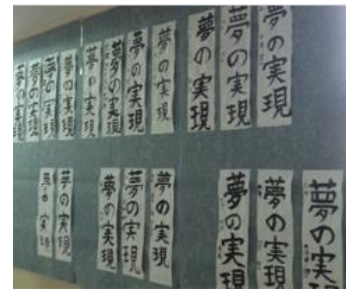 夢の実現
夢の実現
夢の実現
夢の実現
夢の実現
夢の実現
夢の実現
夢の実現
夢の実現
夢の実現
夢の実現
夢の実現
夢の実現
夢の実現
夢の実現
夢の実現
夢の実現
夢の実現
夢の実現